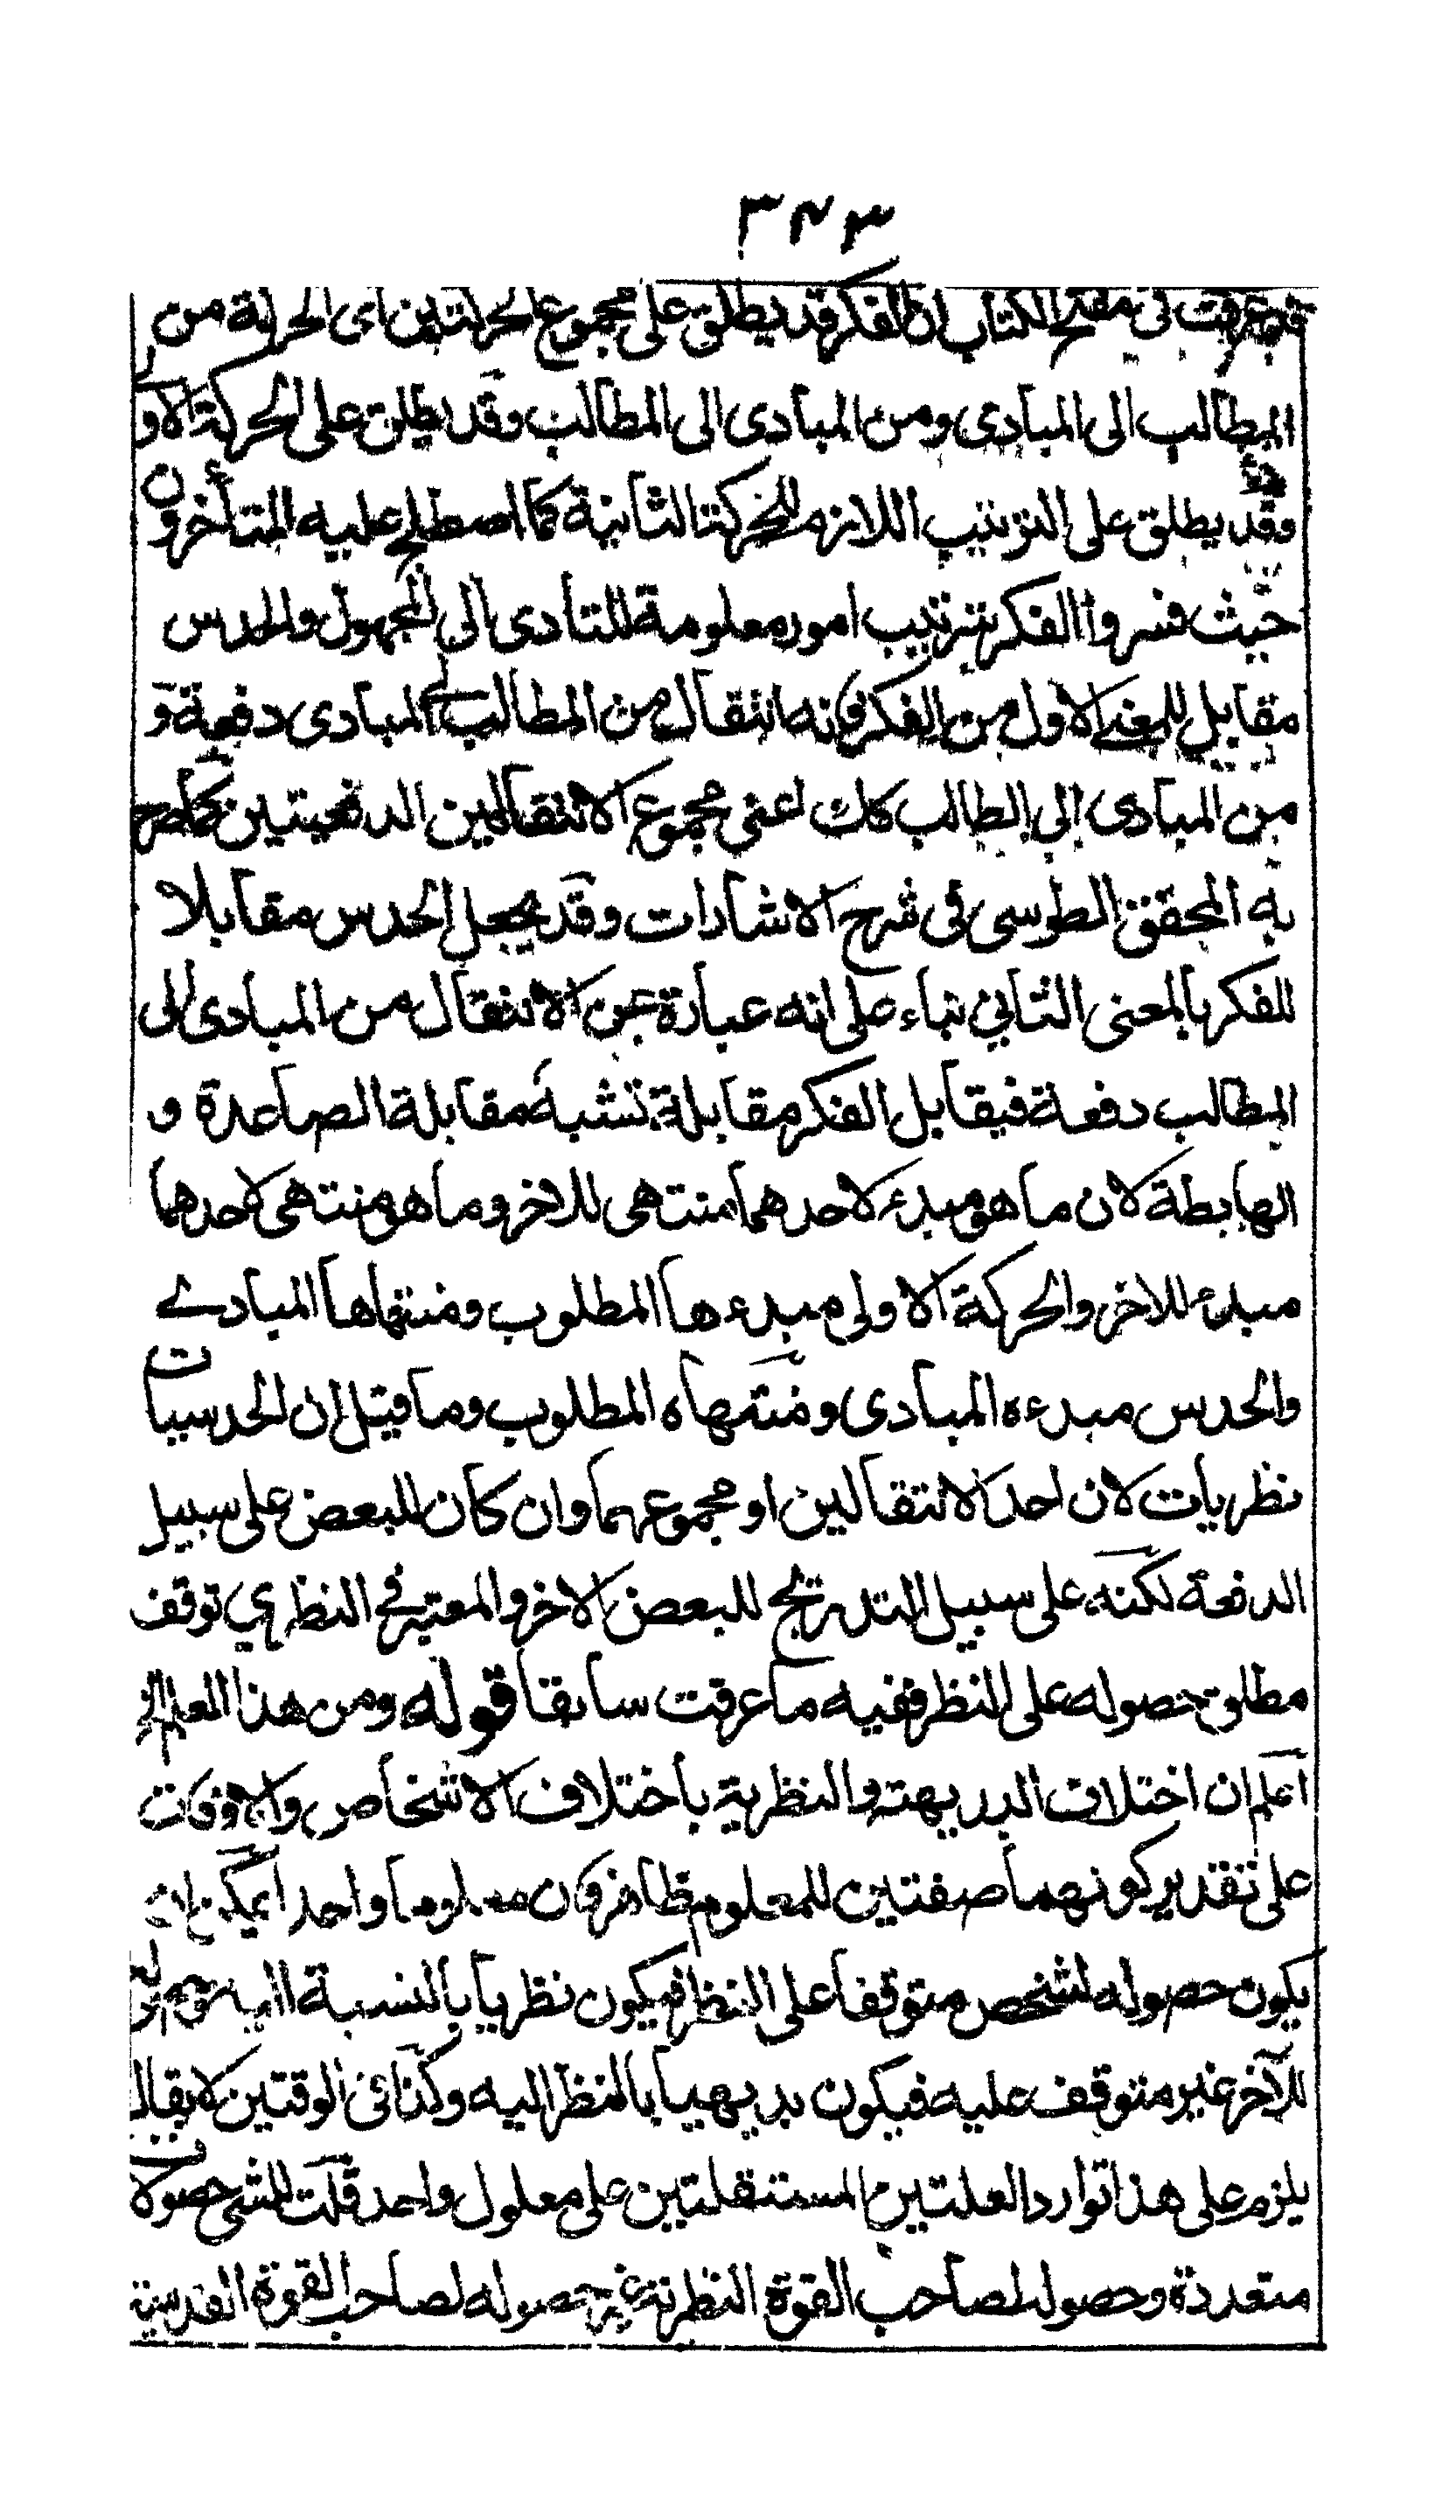 ٣٤٣
قد عرفت فى مفتح الكتاب ان الفكر قد يطلق على مجموع الحركتين اى الحركة من
المطالب الى المبادى ومن المبادى الى المطالب وقد يطلق على الحركة الاولى
وقد يطلق على الترتيب اللازم للحركة الثانية كما اصطلح عليه المتأخرون
حيث فسروا الفكر بترتيب امور معلومة للتأدى الى المجهول والحدس
مقابل للمعنى الاول من الفكر فانه انتقال من المطالب الى المبادى دفعة و
من المبادى الى المطالب كك اعنى مجموع الانتقالين الدفعيتين كما صرح
به المحقق الطوسى فى شرح الاشارات وقد يجعل الحدس مقابلا
للفكر بالمعنى الثانى بناء على انه عبارة عن الانتقال من المبادى الى
المطالب دفعة فيقابل الفكر مقابلة تشبه مقابلة الصاعدة و
الهابطة لان ما هو مبدء لاحدهما منتهى للاخر وما هو منتهى لاحدهما
مبدء للاخر والحركة الاولى مبدءها المطلوب ومنتهاها المبادے
والحدس مبدءه المبادى ومنتهاه المطلوب وما قيل ان الحدسيات
نظريات لان احد الانتقالين او مجموعهما وان كان للبعض على سبيل
الدفعة لكنه على سبيل التدريج للبعض الاخر والمعتبر فى النظري توقف
مطلق حصوله على النظر ففيه ما عرفت سابقا قوله ومن هذا المعلم الخ
اعلم ان اختلاف البديهة والنظرية باختلاف الاشخاص والاوقات
على تقدير كونهما صفتين للمعلوم ظاهر فان معلوما واحدا يمكن ان
يكون حصوله لشخص متوقفا على النظر فيكون نظريا بالنسبة اليه وحصوله
للآخر غير متوقف عليه فيكون بديهيا بالنظر اليه وكذا فى الوقتين لا يقال
يلزم على هذا توارد العلتين المستقلتين على معلول واحد قلت للشئ حصولات
متعددة وحصوله لصاحب القوة النظرية غير حصوله لصاحب القوة القدسية